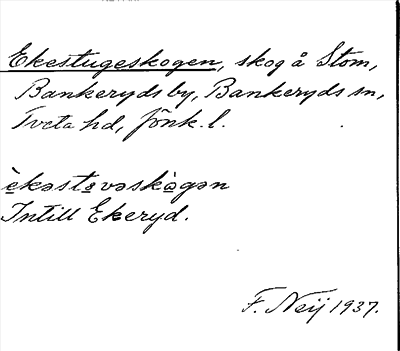 Ekestugeskogen, skog å Stom,
Bankeryds by, Bankeryds sn,
Tveta hd, Jönk. l.
èkəstɵvəskògən
Intill Ekeryd.
F. Neij 1937.